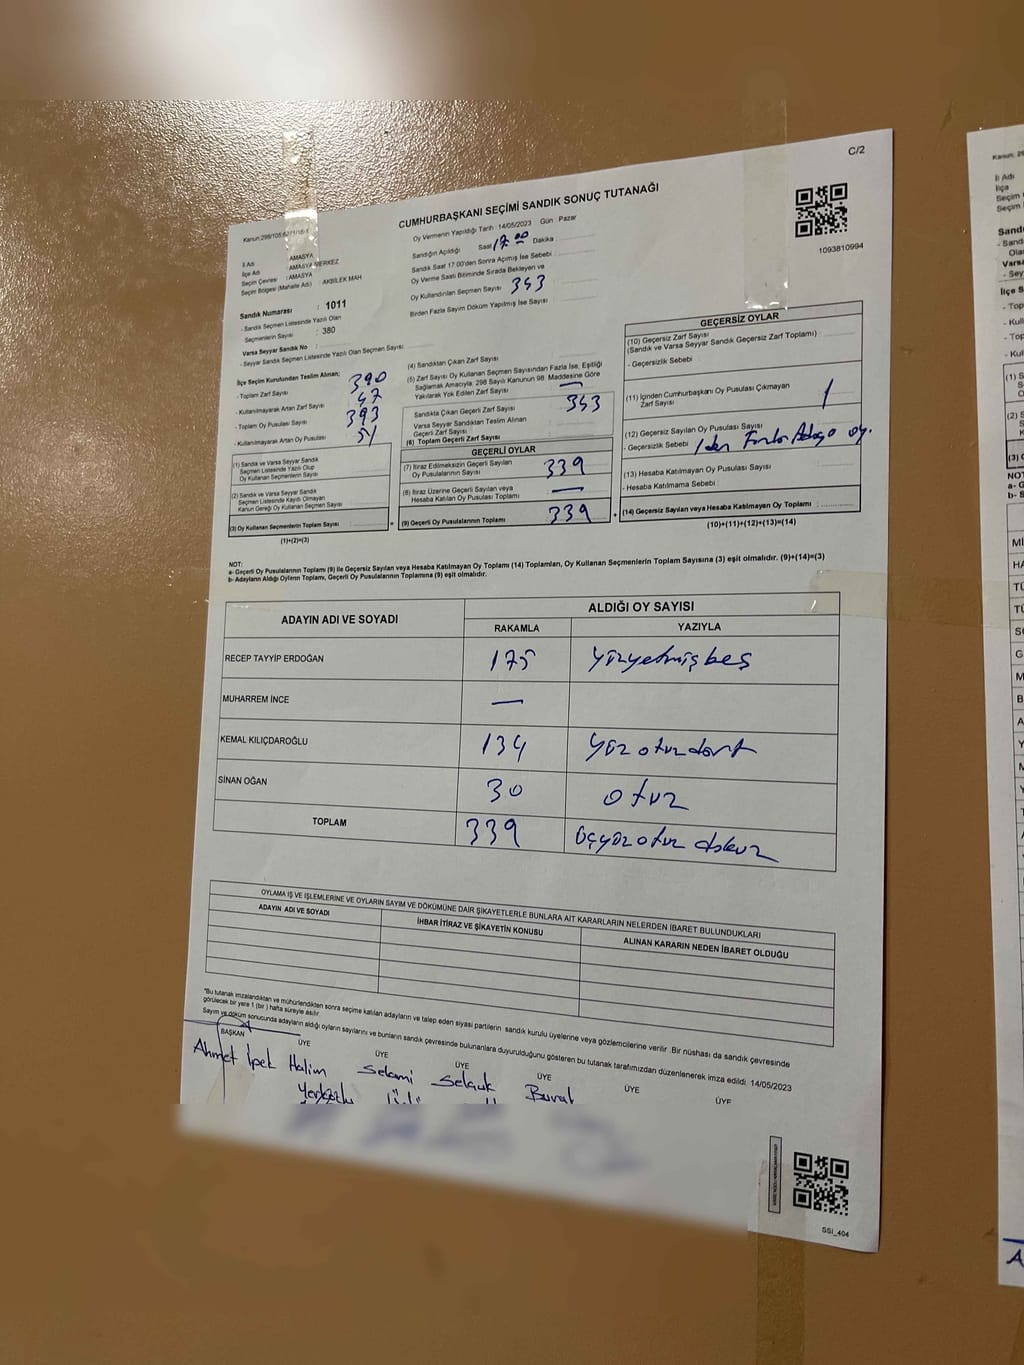 C/2
CUMHURBAŞKANI SEÇİMİ SANDIK SONUÇ TUTANAĞI
Oy Vermenin Yapıldığı Tarih :14/05/2023 Gün : Pazar
1093810994
İl Adı : AMASYA
İlçe Adı : AMASYA MERKEZ
Seçim Çevresi : AMASYA
Seçim Bölgesi (Mahalle Adı) : AKBİLEK MAH
Sandık Numarası : 1011
- Sandık Seçmen Listesinde Yazılı Olan
Seçmenlerin Sayısı : 380
Varsa Seyyar Sandık No :
- Seyyar Sandık Seçmen Listesinde Yazılı Olan Seçmen Sayısı:
Sandığın Açıldığı Saat 17.00 Dakika
Sandık Saat 17.00'den Sonra Açımış İse Sebebi :
Oy Verme Saati Bitiminde Sırada Bekleyen ve
Oy Kullandırılan Seçmen Sayısı 343
Birden Fazla Sayım Döküm Yapılmış İse Sayısı
İlçe Seçim Kurulundan Teslim Alınan;
- Toplam Zarf Sayısı 390
- Kullanılmayarak Artan Zarf Sayısı 47
- Toplam Oy Pusulası Sayısı 393
- Kullanılmayarak Artan Oy Pusulası 51
(1) Sandık ve Varsa Seyyar Sandık
Seçmen Listesinde Yazılı Olup
Oy Kullanan Seçmenlerin Sayısı
(2) Sandık ve Varsa Seyyar Sandık
Seçmen Listesinde Kayıtlı Olmayan
Kanun Gereği Oy Kullanan Seçmen Sayısı
(3) Oy Kullanan Seçmenlerin Toplam Sayısı
(1)+(2)=(3)
(4) Sandıktan Çıkan Zarf Sayısı
(5) Zarf Sayısı Oy Kullanan Seçmen Sayısından Fazla İse, Eşitliği
Sağlamak Amacıyla, 298 Sayılı Kanunun 98. Maddesine Göre
Yakılarak Yok Edilen Zarf Sayısı —
Sandıkta Çıkan Geçerli Zarf Sayısı 343
Varsa Seyyar Sandıktan Teslim Alınan
Geçerli Zarf Sayısı
(6) Toplam Geçerli Zarf Sayısı
GEÇERLİ OYLAR
(7) İtiraz Edilmeksizin Geçerli Sayılan
Oy Pusulalarının Sayısı 339
(8) İtiraz Üzerine Geçerli Sayılan ve
Hesaba Katılan Oy Pusulası Toplamı —
(9) Geçerli Oy Pusulalarının Toplamı 339
GEÇERSİZ OYLAR
(10) Geçersiz Zarf Sayısı
(Sandık ve Varsa Seyyar Sandık Geçersiz Zarf Toplamı)
- Geçersizlik Sebebi
(11) İçinden Cumhurbaşkanı Oy Pusulası Çıkmayan
Zarf Sayısı 1
(12) Geçersiz Sayılan Oy Pusulası Sayısı
- Geçersizlik Sebebi 1 den Fazla Adaya oy.
(13) Hesaba Katılmayan Oy Pusulası Sayısı
- Hesaba Katılmama Sebebi
(14) Geçersiz Sayılan veya Hesaba Katılmayan Oy Toplamı
(10)+(11)+(12)+(13)=(14)
NOT:
a- Geçerli Oy Pusulalarının Toplamı (9) ile Geçersiz Sayılan veya Hesaba Katılmayan Oy Toplamı (14) Toplamları, Oy Kullanan Seçmenlerin Toplam Sayısına (3) eşit olmalıdır. (9)+(14)=(3)
b- Adayların Aldığı Oyların Toplamı, Geçerli Oy Pusulalarının Toplamına (9) eşit olmalıdır.
ADAYIN ADI VE SOYADI ALDIĞI OY SAYISI
RAKAMLA YAZIYLA
RECEP TAYYİP ERDOĞAN 175 yüzyetmişbeş
MUHARREM İNCE —
KEMAL KILIÇDAROĞLU 134 yüz otuz dört
SİNAN OĞAN 30 otuz
TOPLAM 339 üçyüz otuz dokuz
OYLAMA İŞ VE İŞLEMLERİNE VE OYLARIN SAYIM VE DÖKÜMÜNE DAİR ŞİKAYETLERLE BUNLARA AİT KARARLARIN NELERDEN İBARET BULUNDUKLARI
ADAYIN ADI VE SOYADI İHBAR İTİRAZ VE ŞİKAYETİN KONUSU ALINAN KARARIN NEDEN İBARET OLDUĞU
*Bu tutanak imzalandıktan ve mühürlendikten sonra seçime katılan adayların ve talep eden siyasi partilerin sandık kurulu üyelerine veya gözlemcilerine verilir. Bir nüshası da sandık çevresinde
görülecek bir yere 1 (bir) hafta süreyle asılır.
Sayım ve döküm sonucunda adayların aldığı oyların sayılarını ve bunların sandık çevresinde bulunanlara duyurulduğunu gösteren bu tutanak tarafımızdan düzenlenerek imza edildi. 14/05/2023
BAŞKAN ÜYE ÜYE ÜYE ÜYE ÜYE ÜYE
Ahmet İpek Halim Selami Selçuk Burak
SSİ_404